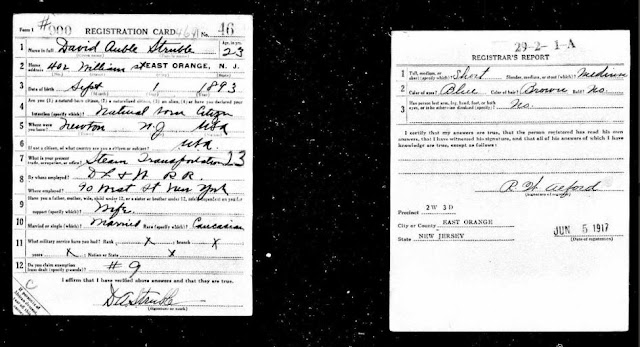 Form 1 #900 REGISTRATION CARD No. 46
1 Name in full David Auble Struble Age, in yrs. 23
2 Home address 402 William St EAST ORANGE, N. J.
3 Date of birth Sept 1 1893
4 Are you (1) a natural born citizen, (2) a naturalized citizen, (3) an alien, (4) or have you declared your
intention (specify which)? Natural born Citizen
5 Where were you born? Newton N.J. USA
6 If not a citizen, of what country are you a citizen or subject? USA
7 What is your present trade, occupation, or office? Steam Transportation 23
8 By whom employed? D L & W R.R.
Where employed? 90 West St New York
9 Have you a father, mother, wife, child under 12, or a sister or brother under 12, solely dependent on you for
support (specify which)? Wife
10 Married or single (which)? Married Race (specify which)? Caucasian
11 What military service have you had? Rank X ; branch X
years X ; Nation or State X
12 Do you claim exemption from draft (specify grounds)? #9
I affirm that I have verified above answers and that they are true.
D A Struble
(Signature or mark)
29-2-1-A
REGISTRAR'S REPORT
1 Tall, medium, or short (specify which)? Short Slender, medium, or stout (which)? Medium
2 Color of eyes? Blue Color of hair? Brown Bald? No
3 Has person lost arm, leg, hand, foot, or both
eyes, or is he otherwise disabled (specify)? No
I certify that my answers are true, that the person registered has read his own
answers, that I have witnessed his signature, and that all of his answers of which I have
knowledge are true, except as follows:
(Signature of registrar)
Precinct 2W 3D
City or County EAST ORANGE
State NEW JERSEY
JUN 5 1917
(Date of registration)